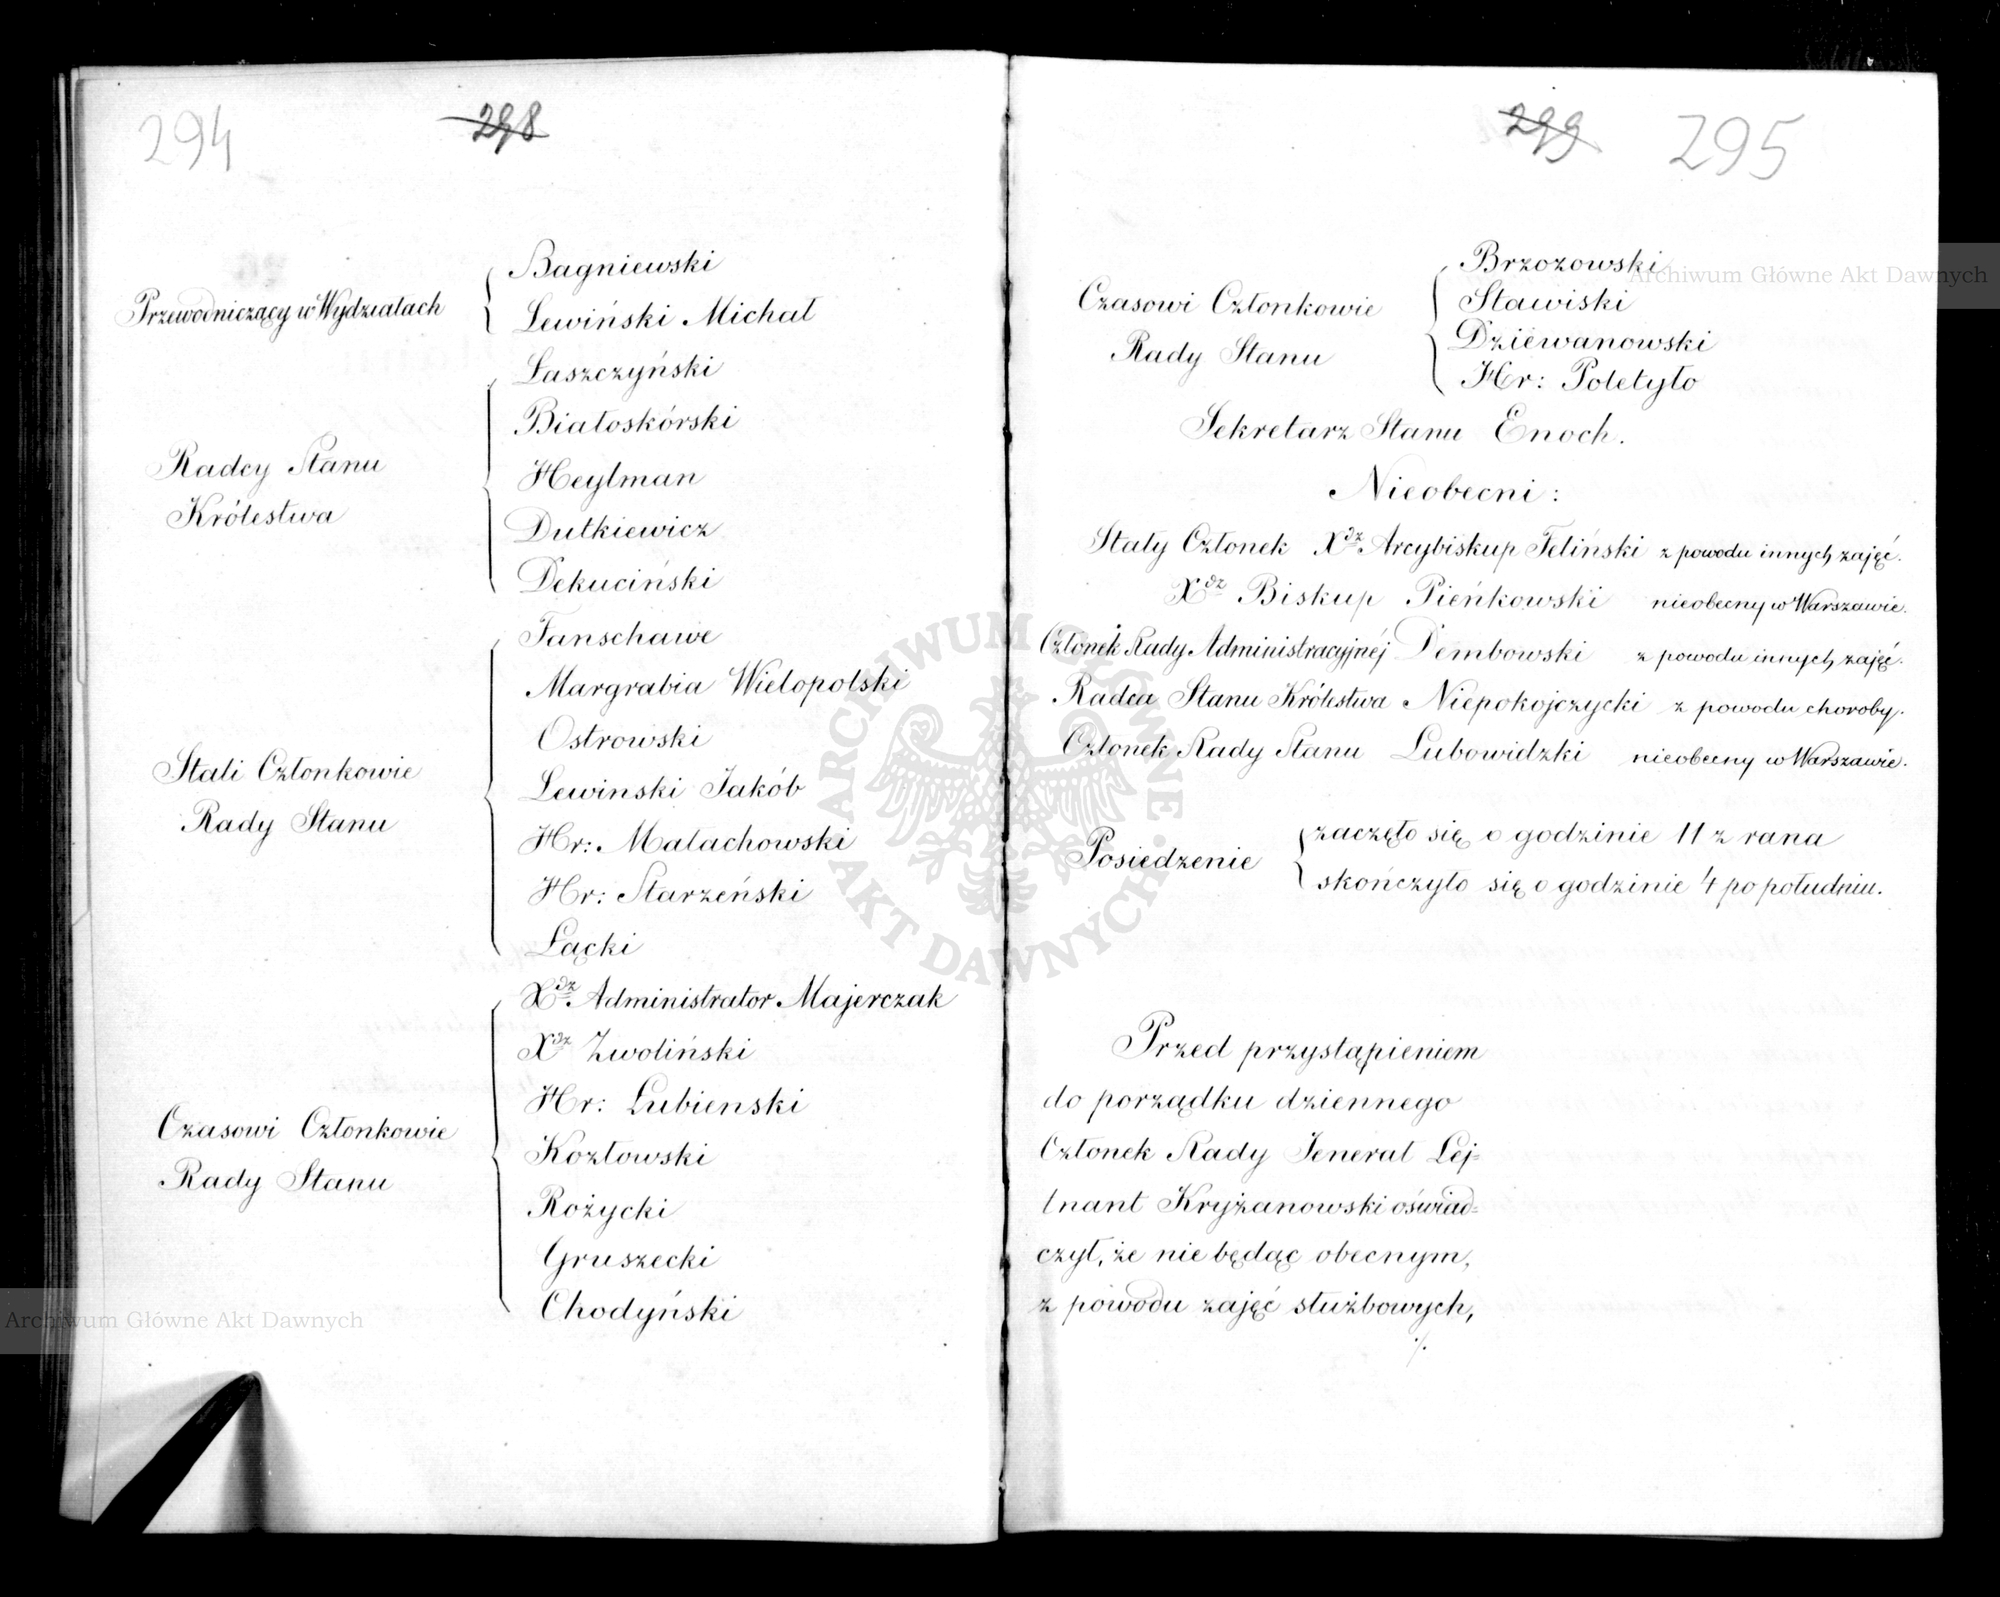 294
298
Przewodniczący w Wydziałach
Bagniewski
Lewiński Michał
Radcy Stanu
Królestwa
Łaszczyński
Białoskórski
Heylman
Dutkiewicz
Dekuciński
Stali Członkowie
Rady Stanu
Fanschawe
Margrabia Wielopolski
Ostrowski
Lewinski Jakób
Hr: Małachowski
Hr: Starzeński
Łącki
Czasowi Członkowie
Rady Stanu
Xdz. Administrator Majerczak
Xdz Zwoliński
Hr: Łubienski
Kozłowski
Rożycki
Gruszecki
Chodyński
299
295
Czasowi Członkowie
Rady Stanu
Brzozowski
Stawiski
Dziewanowski
Hr: Poletyło
Sekretarz Stanu Enoch.
Nieobecni:
Stały Członek Xdz. Arcybiskup Feliński z powodu innych zajęć.
Xdz Biskup Pieńkowski nieobecny w Warszawie.
Członek Rady Administracyjnéj Dembowski z powodu innych zajęć.
Radca Stanu Królestwa Niepokojczycki z powodu choroby.
Członek Rady Stanu Lubowidzki nieobecny w Warszawie.
Posiedzenie
zaczęło się o godzinie 11 z rana
skończyło się o godzinie 4 po południu.
Przed przystąpieniem
do porządku dziennego
Członek Rady Jenerał Lej=
tnant Kryżanowski oświad=
czył, że nie będąc obecnym,
z powodu zajęć służbowych,
./.
Archiwum Główne Akt Dawnych
Archiwum Główne Akt Dawnych
ARCHIWUM GŁÓWNE AKT DAWNYCH